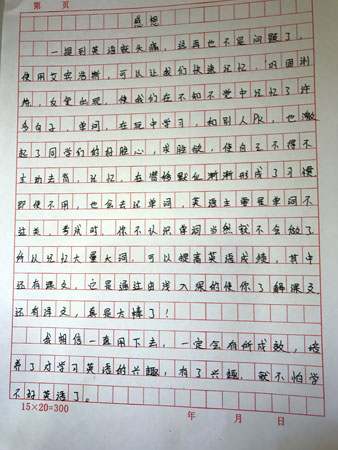 第 页
感想
一提到英语就头痛,这再也不是问题了,
使用艾宾浩斯,可以让我们快速记忆,巩固训
练,反复出现,使我们在不知不觉中记忆了许
多句子,单词,在玩中学习,和别人PK,也激
起了同学们的好胜心,求胜欲,使自己不得不
主动去背,记忆,在潜移默化渐渐形成了习惯
即使不用,也会去记单词,英语主要是单词不
过关,考试时,你不认识单词当然就不会做了
所以记忆大量大词,可以提高英语成绩,其中
还有课文,它是通过由浅入深的使你了解课文
还有译文,真是太棒了!
我相信一直用下去,一定会有所成效,培
养了对学习英语的兴趣,有了兴趣,就不怕学
不好英语了。
15×20=300 年 月 日